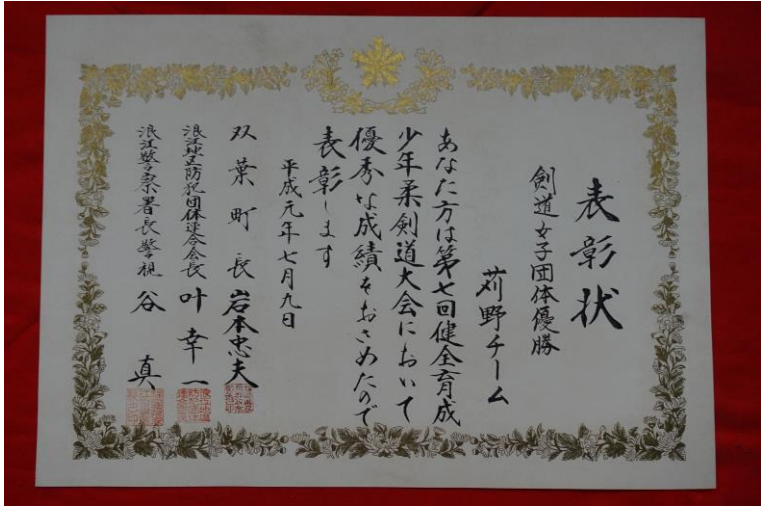 表彰状
剣道女子団体優勝
苅野チーム
あなた方は第七回健全育成
少年柔剣道大会において
優秀な成績をおさめたので
表彰します
平成元年七月九日
双葉町長 岩本忠夫
浪江地区防犯団体連合会長 叶幸一
浪江警察署長警視 谷真